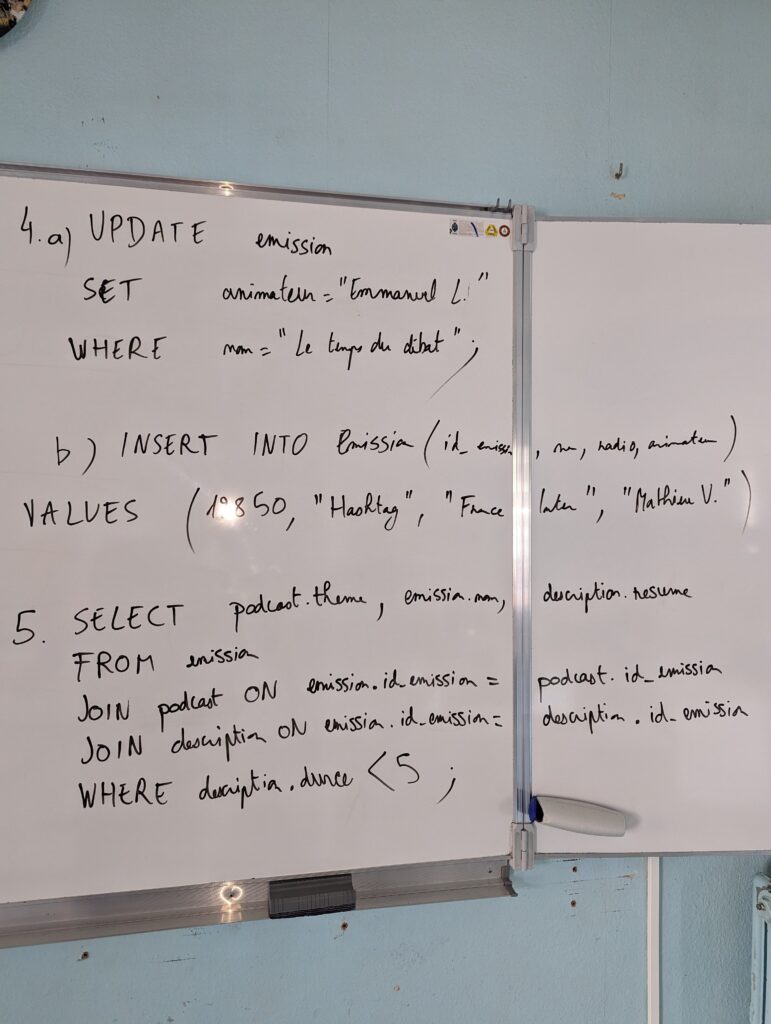 4.a) UPDATE emission
SET animateur = "Emmanuel L."
WHERE nom = "Le temps du débat" ;
b) INSERT INTO Emission (id_emission, nom, radio, animateur)
VALUES (12850, "Hashtag", "France Inter", "Mathieu V.")
5. SELECT podcast.theme, emission.nom, description.resume
FROM emission
JOIN podcast ON emission.id_emission = podcast.id_emission
JOIN description ON emission.id_emission = description.id_emission
WHERE description.duree < 5 ;